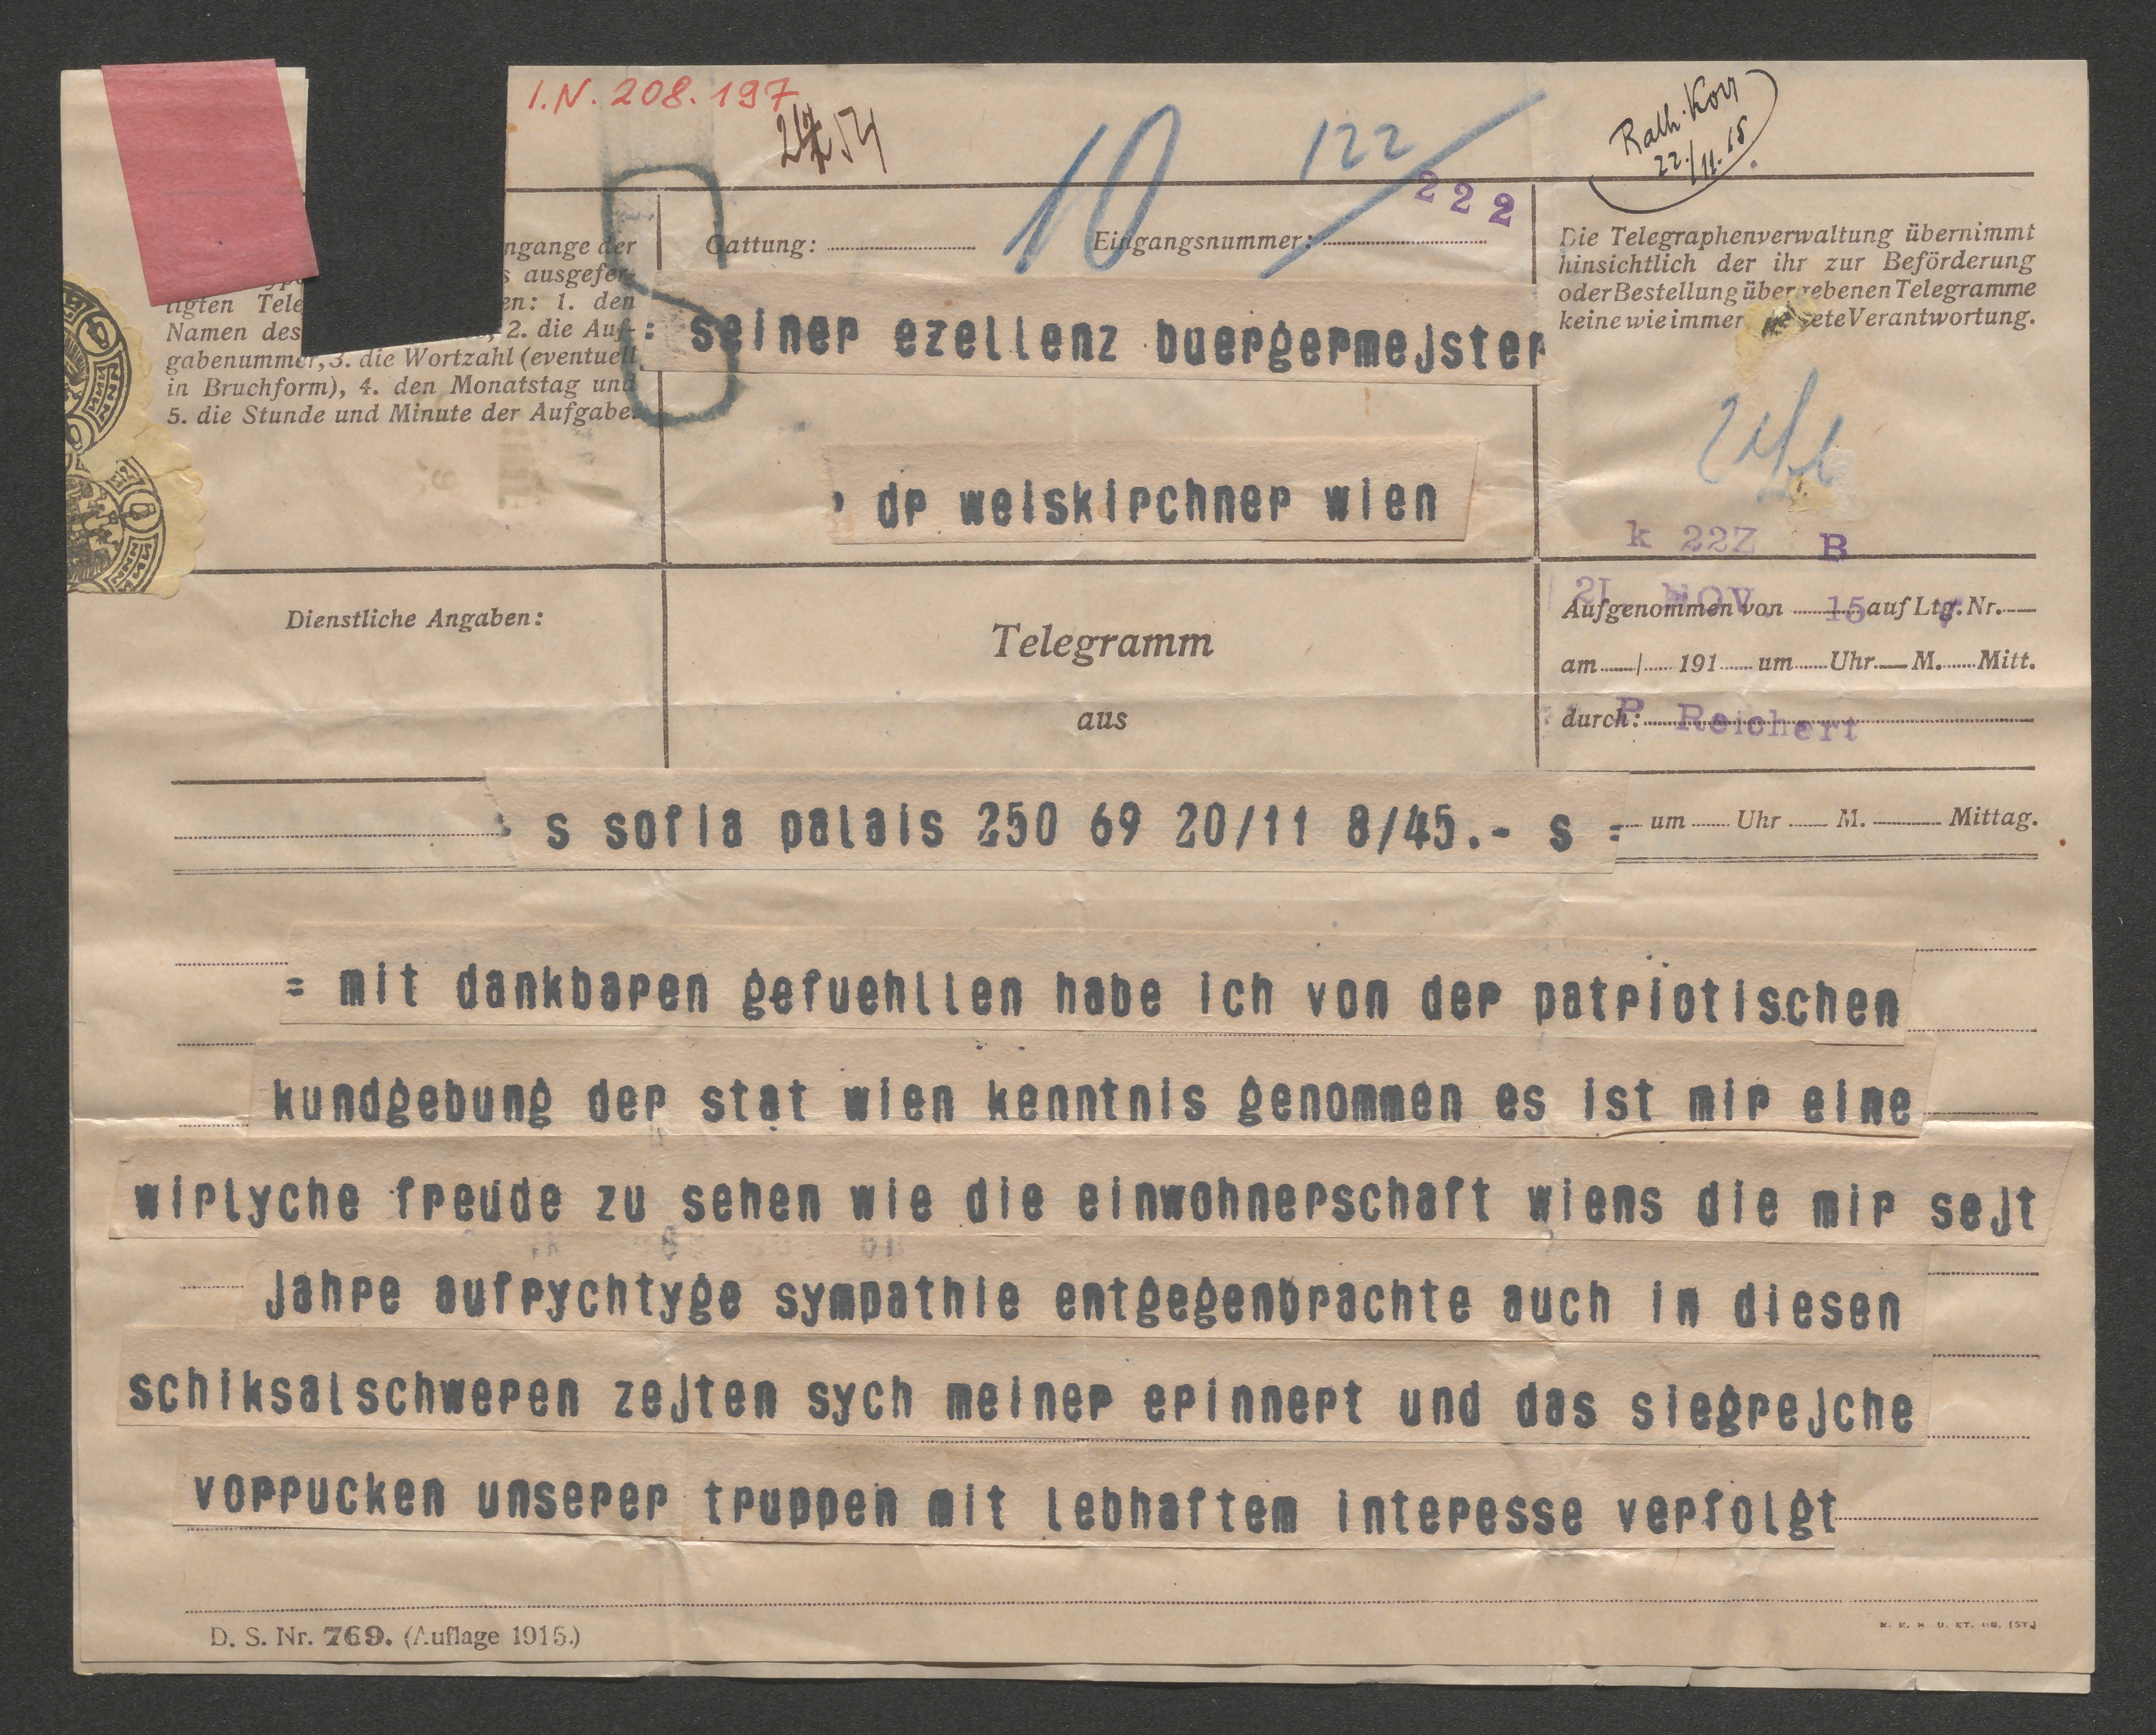 I.N. 208.197
10
122
Rath. Korr
22./11. 15.
222
ngange der
s ausgefer-
tigten Tele en: 1. den
Namen des 2. die Auf-
gabenummer, 3. die Wortzahl (eventuell
in Bruchform), 4. den Monatstag und
5. die Stunde und Minute der Aufgabe.
Gattung: Eingangsnummer:
: seiner ezellenz buergermejster
dr weiskirchner wien
Die Telegraphenverwaltung übernimmt
hinsichtlich der ihr zur Beförderung
oder Bestellung übergebenen Telegramme
keine wie immer ete Verantwortung.
k 22Z B
21. NOV. 15
Dienstliche Angaben:
Telegramm
aus
Aufgenommen von auf Ltg. Nr.
am / 191 um Uhr M. Mitt.
durch: P Reichert
s sofia palais 250 69 20/11 8/45.- s =
um Uhr M. Mittag.
= mit dankbaren gefuehllen habe ich von der patriotischen
kundgebung der stat wien kenntnis genommen es ist mir eine
wirlyche freude zu sehen wie die einwohnerschaft wiens die mir sejt
jahre aufrychtyge sympathie entgegenbrachte auch in diesen
schiksalschweren zejten sych meiner erinnert und das siegrejche
vorrucken unserer truppen mit lebhaftem interesse verfolgt
D. S. Nr. 769. (Auflage 1915.)